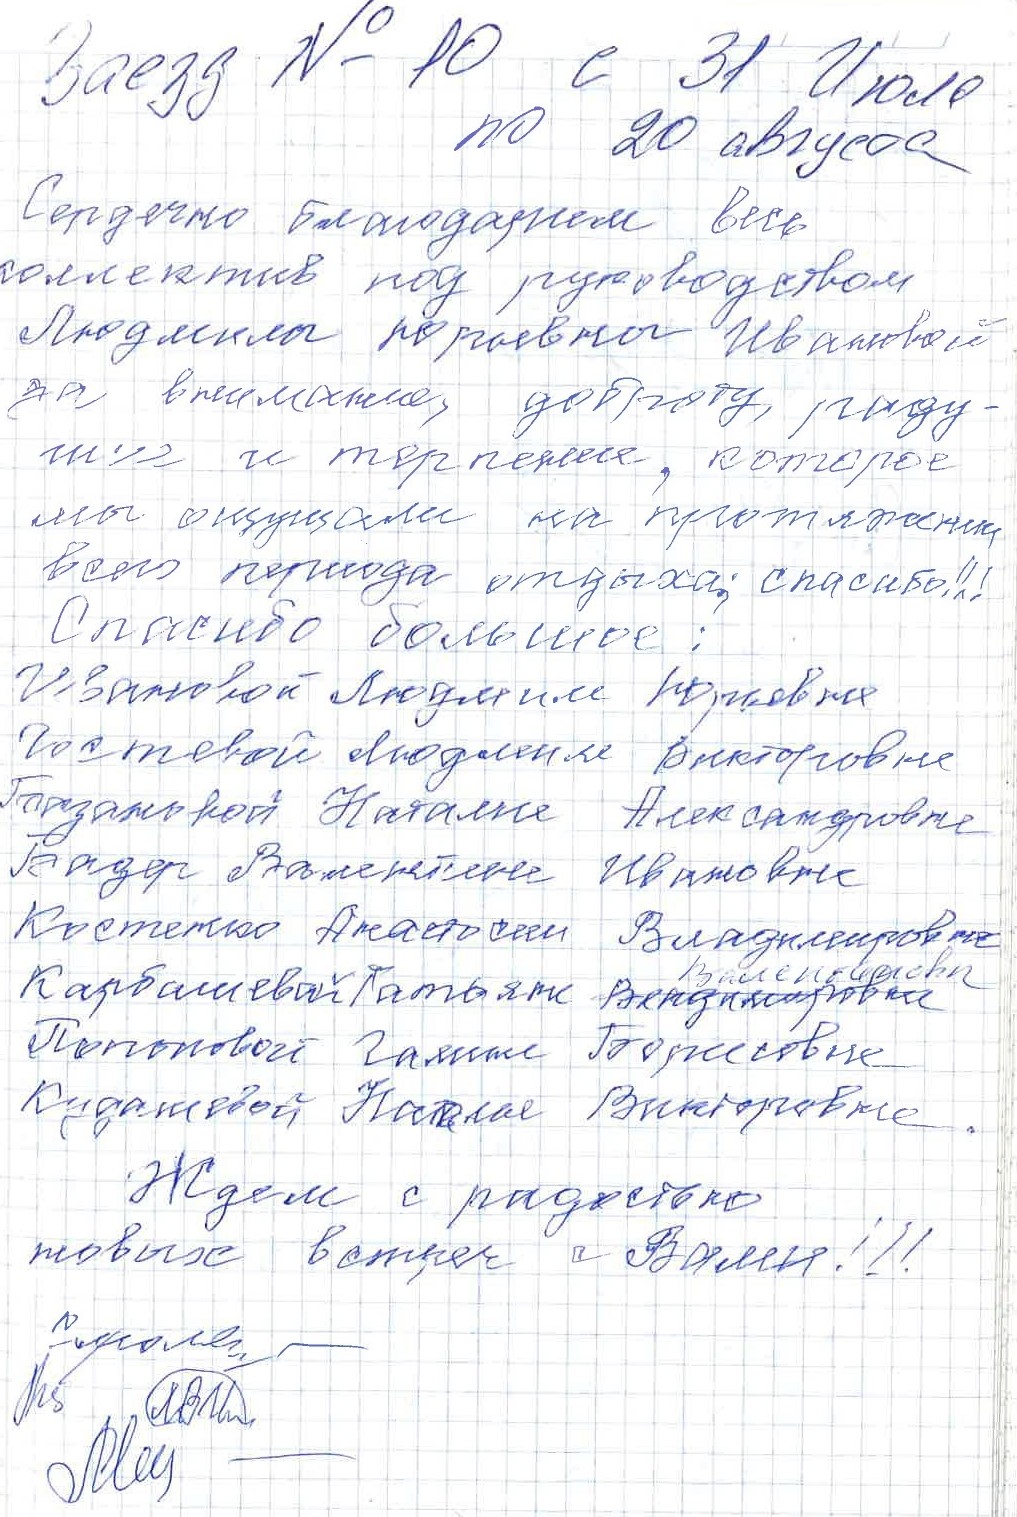 Заезд № 10 с 31 Июля
по 20 августа
Сердечно благодарим весь
коллектив под руководством
Людмилы Юрьевны Ивановой
за внимание, доброту, раду-
шие и терпение, которое
мы ощущали на протяжении
всего периода отдыха; спасибо!!!
Спасибо большое:
Ивановой Людмиле Юрьевне
Гостевой Людмиле Викторовне
Наталье Александровне
Бадер Валентине Ивановне
Костенко Анастасии Владимировне
Валентиновне
Карбашевой Татьяне Владимировне
Галине Борисовне
Кудашевой Наталье Викторовне.
Ждем с радостью
новых встреч с Вами!!!